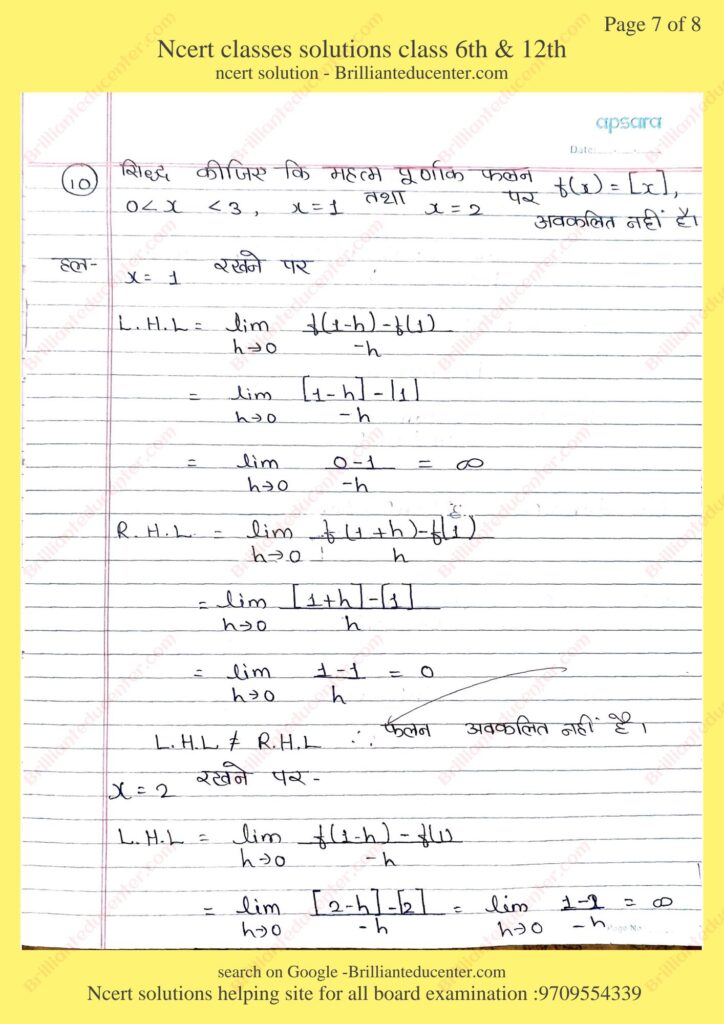 Page 7 of 8
Ncert classes solutions class 6th & 12th
ncert solution - Brillianteducenter.com
apsara
Date:
(10) सिद्ध कीजिए कि महत्म पूर्णांक फलन f(x) = [x],
0 < x < 3, x = 1 तथा x = 2 पर अवकलित नहीं है।
हल- x = 1 रखने पर
L.H.L = lim h→0 f(1-h)-f(1) / -h
= lim h→0 [1-h]-[1] / -h
= lim h→0 0-1 / -h = ∞
R.H.L = lim h→0 f(1+h)-f(1) / h
= lim h→0 [1+h]-[1] / h
= lim h→0 1-1 / h = 0
L.H.L ≠ R.H.L ∴ फलन अवकलित नहीं है।
x = 2 रखने पर -
L.H.L = lim h→0 f(1-h) - f(1) / -h
= lim h→0 [2-h]-[2] / -h = lim h→0 1-2 / -h = ∞
Page No
search on Google -Brillianteducenter.com
Ncert solutions helping site for all board examination :9709554339
Brillianteducenter.com